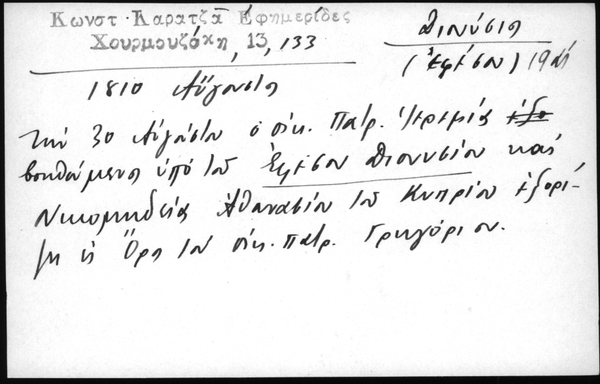 Κωνστ. Καρατζᾶ Ἐφημερίδες
Χουρμουζάκη, 13, 133
Διονύσιος
(Ἐφέσου)
1810 Αὔγουστος
Τὴν 30 Αὐγούστου ὁ οἰκ. Πατρ. Ἱερεμίας
βοηθούμενος ὑπὸ τοῦ Ἐφέσου Διονυσίου καὶ
Νικομηδείας Ἀθανασίου τοῦ Κυπρίου ἐξορί-
ζει εἰς Ὄρος τὸν οἰκ. πατρ. Γρηγόριον.